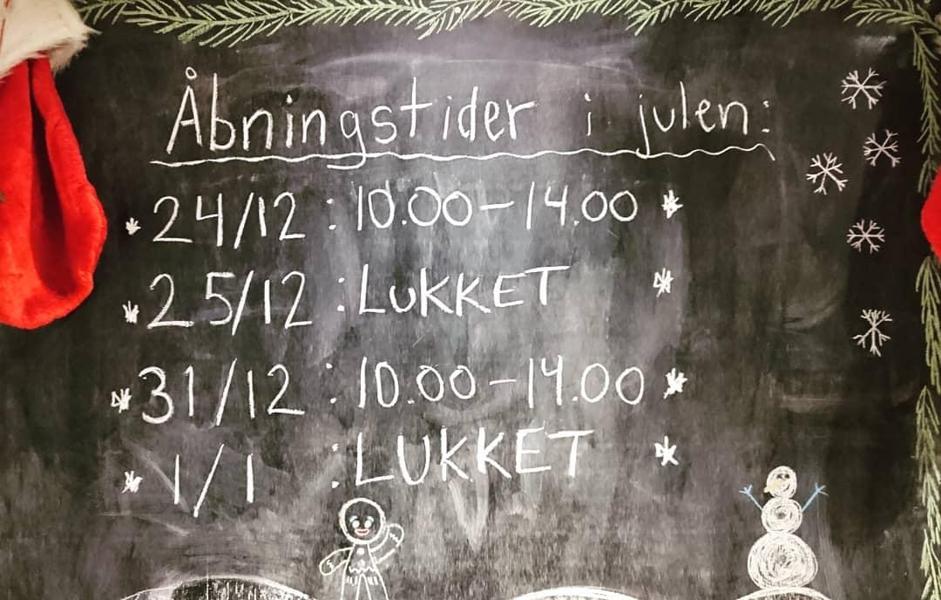 Åbningstider i julen:
24/12 : 10.00-14.00
25/12 : LUKKET
31/12 : 10.00-14.00
1/1 : LUKKET